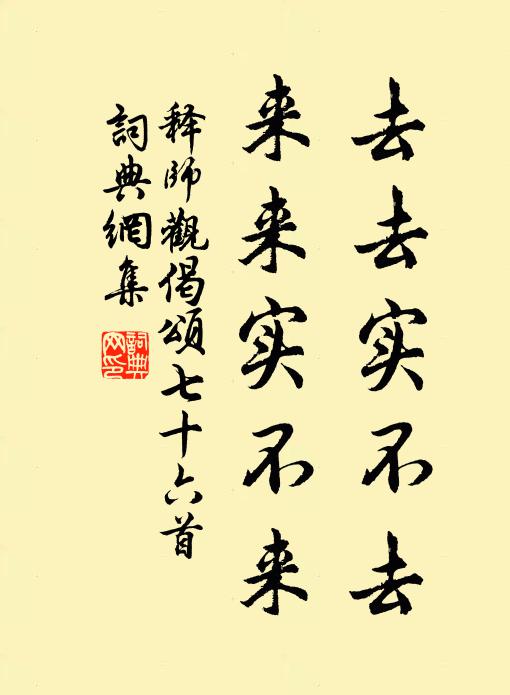 去去实不去
来来实不来
释师觀偈頌七十六首
詞典網集
詞典网印